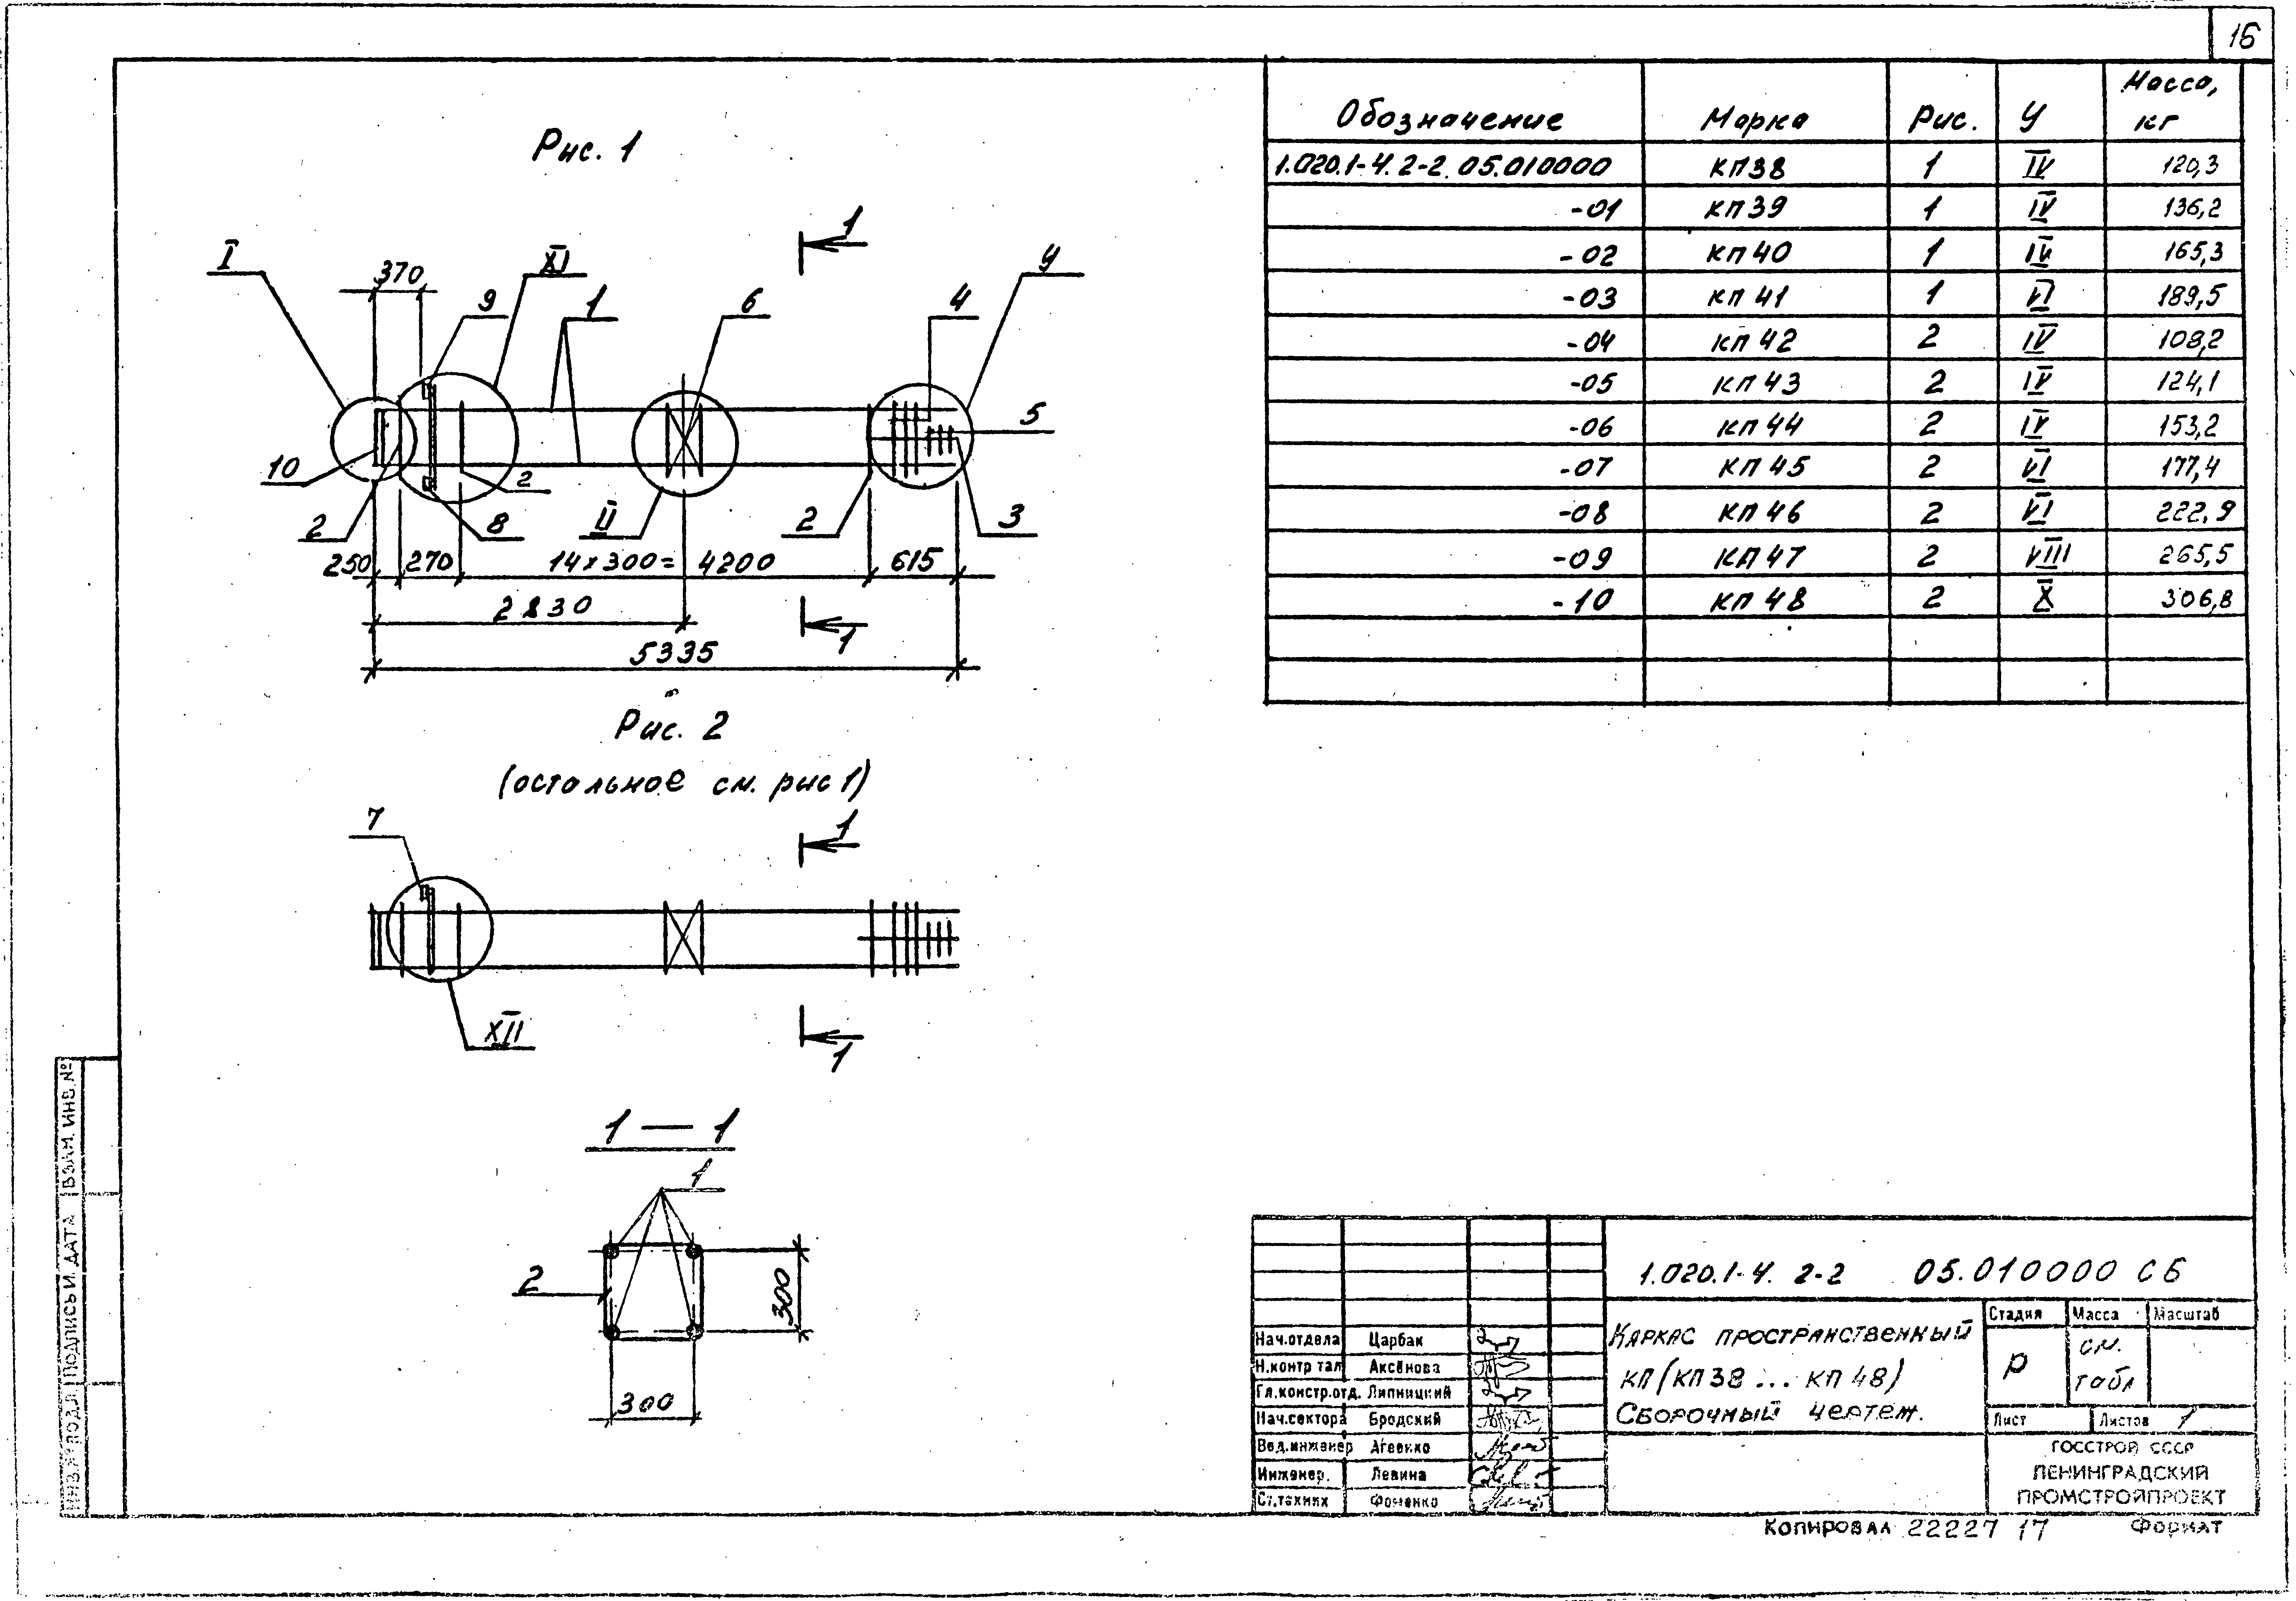 16
Рис. 1
I
370
XI
9
1
6
4
У
1
5
10
2
8
2
II
2
3
250 270 14х300= 4200 615
2830
1
5335
Рис. 2
(остальное см. рис 1)
7
1
XII
1
1 — 1
1
2
300
300
Обозначение Марка Рис. У Масса, кг
1.020.1-4. 2-2. 05.010000 КП38 1 IV 120,3
-01 КП39 1 IV 136,2
-02 КП40 1 IV 165,3
-03 КП41 1 VI 189,5
-04 КП42 2 IV 108,2
-05 КП43 2 IV 124,1
-06 КП44 2 IV 153,2
-07 КП45 2 VI 177,4
-08 КП46 2 VI 222,9
-09 КП47 2 VIII 265,5
-10 КП48 2 X 306,8
1.020.1-4. 2-2 05.010000 СБ
Каркас пространственный
КП (КП38 ... КП48)
Сборочный чертеж.
Стадия Масса Масштаб
Р см. табл
Лист Листов 1
ГОССТРОЙ СССР
ЛЕНИНГРАДСКИЙ
ПРОМСТРОЙПРОЕКТ
Нач.отдела Царбак
Н.контр тал Аксёнова
Гл.констр.отд. Липницкий
Нач.сектора Бродский
Вед.инженер Агеенко
Инженер. Левина
Ст.техник Фоменко
Копировал 22227 17 Формат
ИНВ.№ ПОДЛ. ПОДПИСЬ И ДАТА ВЗАМ. ИНВ. №